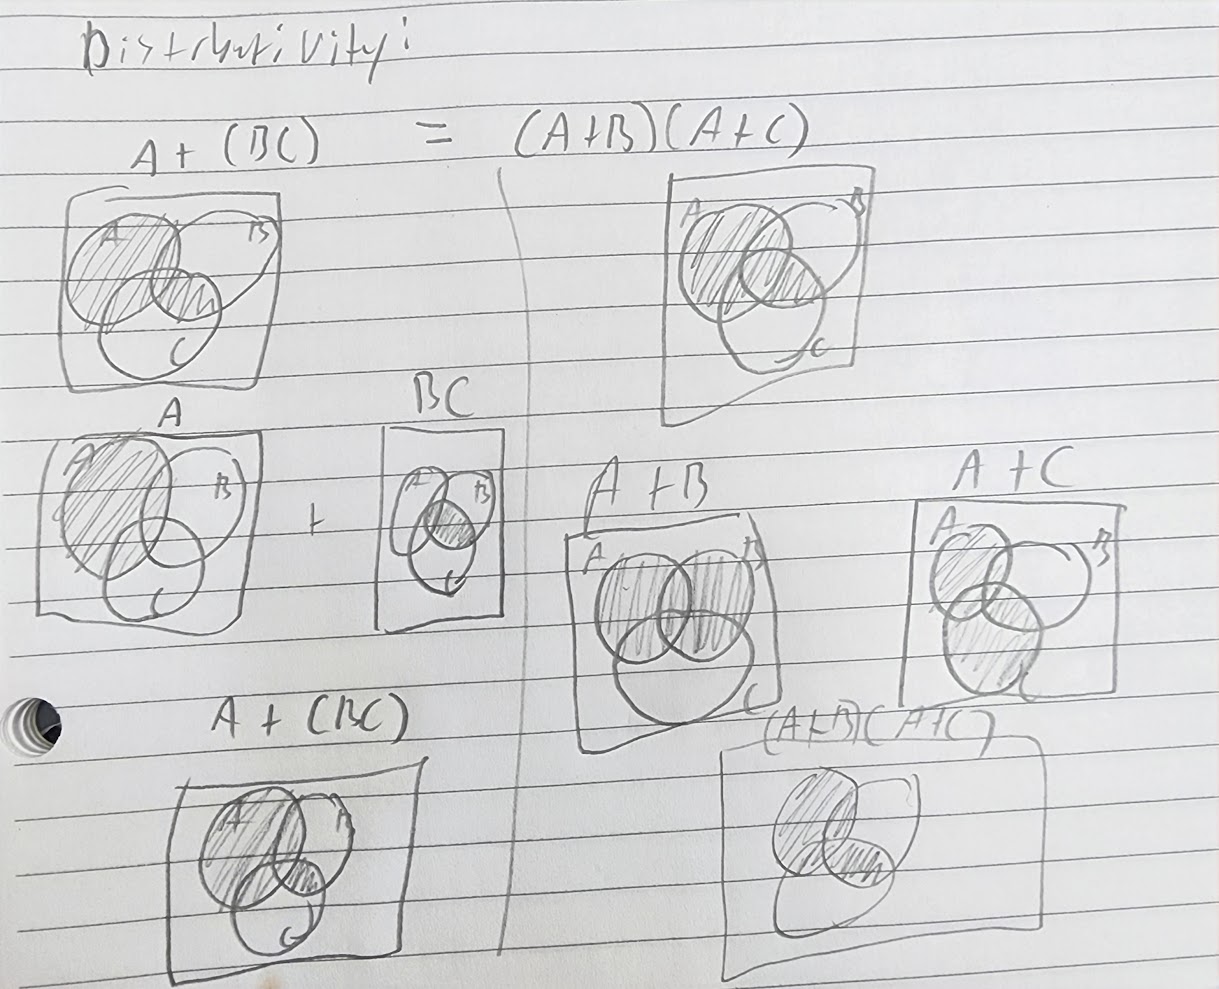 Distributivity:
A + (BC) = (A+B)(A+C)
A B C
A B C
A
BC
A B C
+
A B C
A + B
A + C
A B C
A B
A + (BC)
(A+B)(A+C)
A C